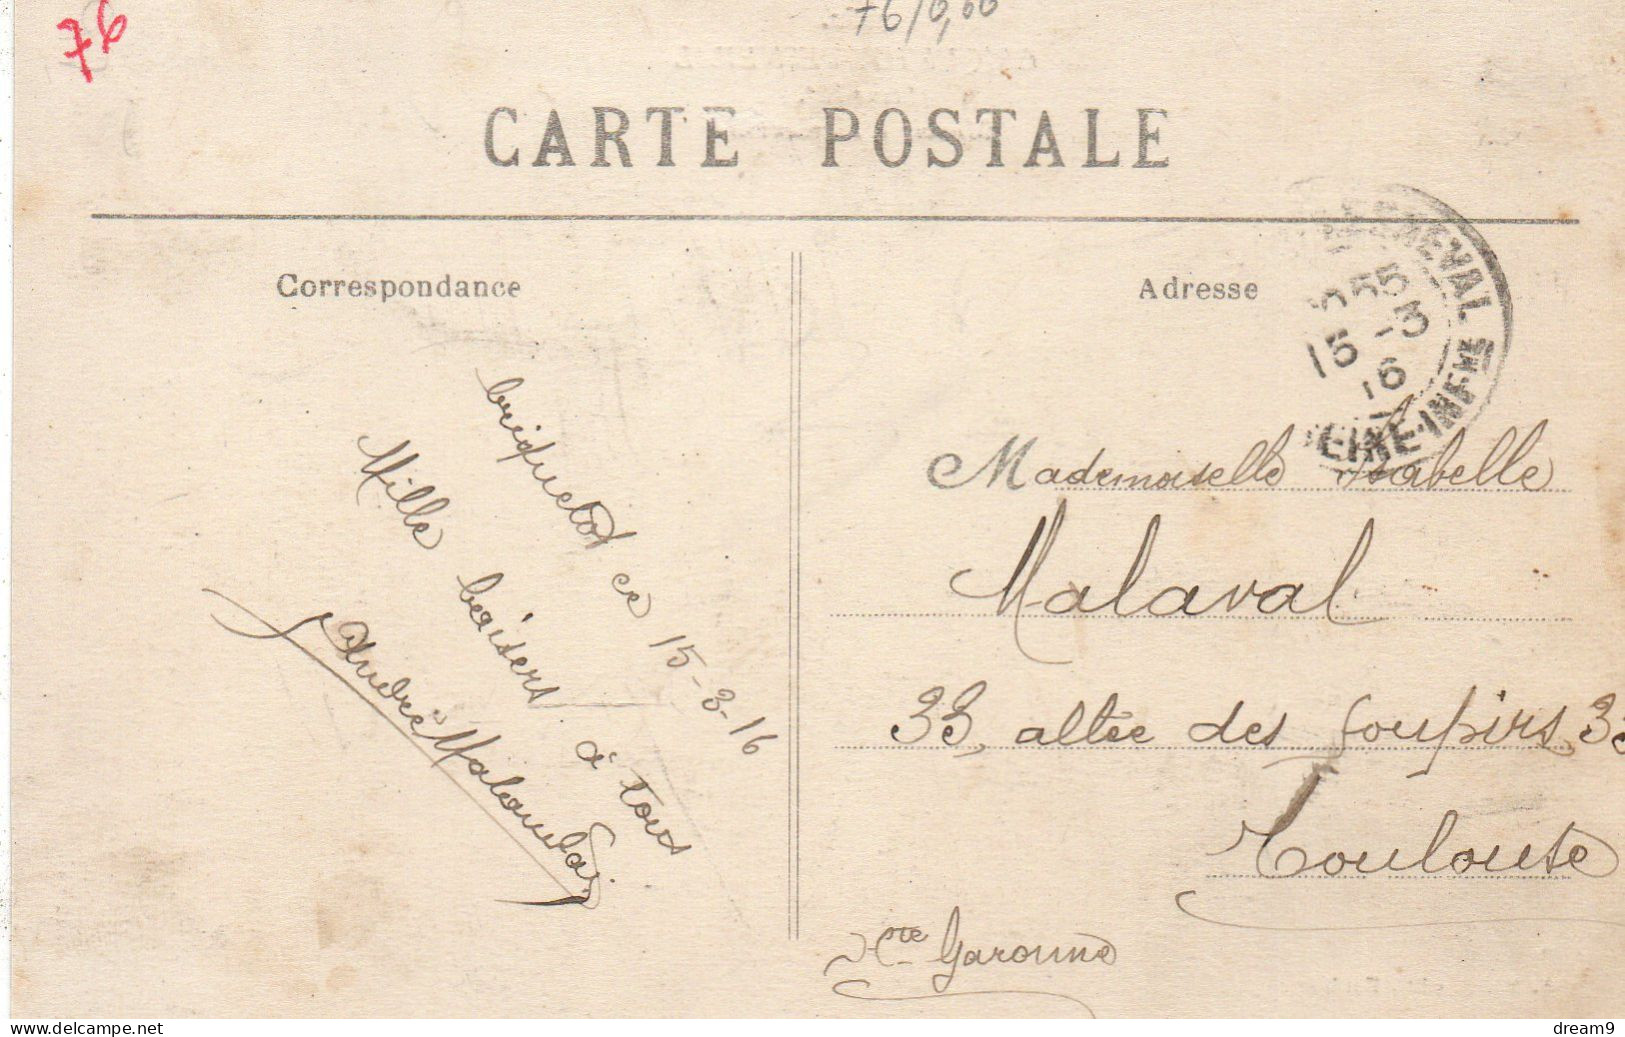 76
76/0,60
CARTE POSTALE
Correspondance
Adresse
CHEVAL
1055
15-3
16
SEINE-INFRE
briquetot ce 15-3-16
Mille baisers à tous
André
Mademoiselle Isabelle
Malaval
33, allée des Soupirs, 33
Toulouse
Hte Garonne
www.delcampe.net
dream9